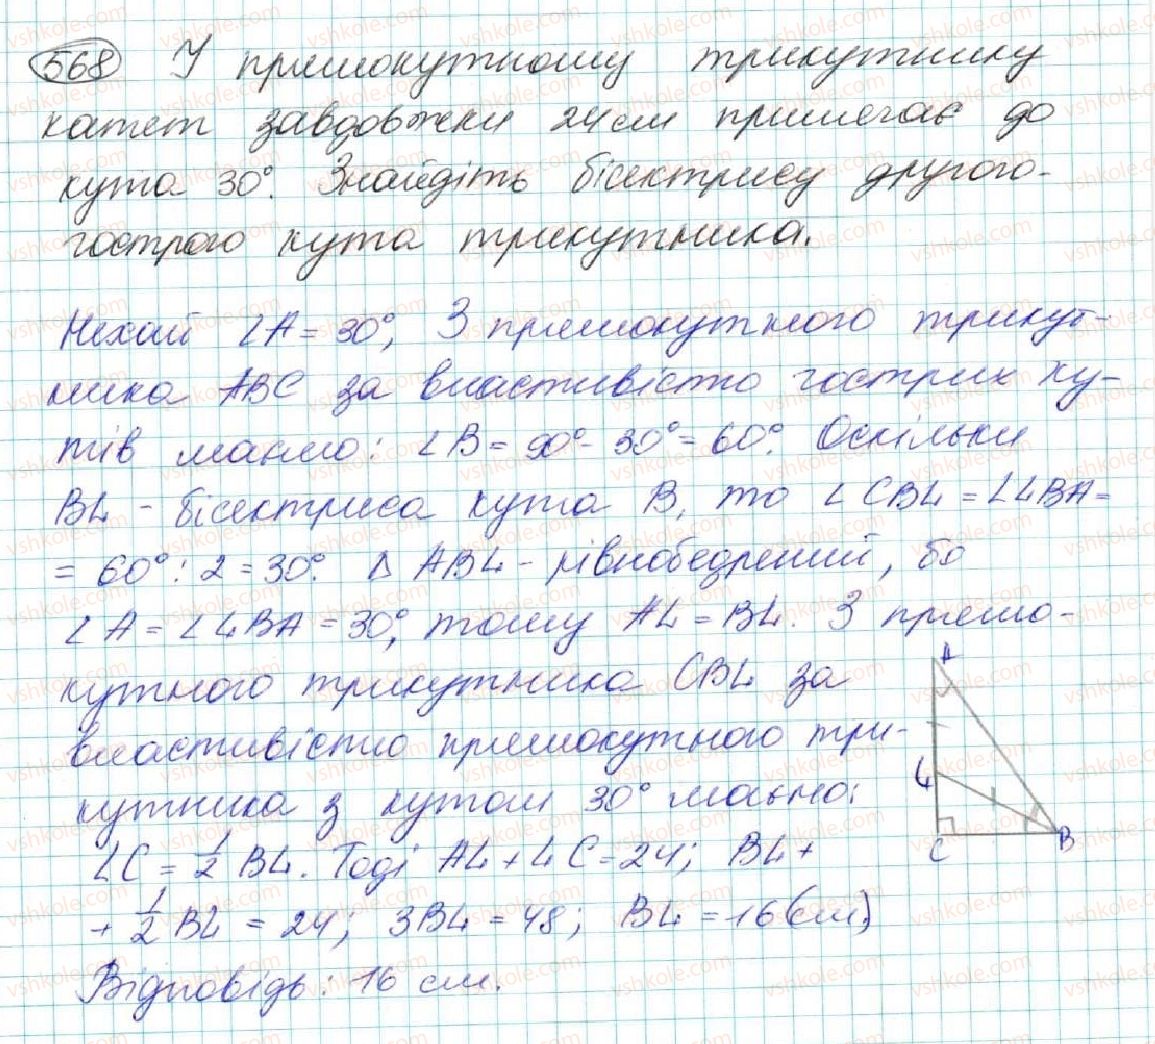 568 У прямокутному трикутнику
катет завдовжки 24 см прилягає до
кута 30°. Знайдіть бісектрису другого
гострого кута трикутника.
Нехай ∠A = 30°, З прямокутного трикут-
ника ABC за властивістю гострих ку-
тів маємо: ∠B = 90° - 30° = 60°. Оскільки
BL - бісектриса кута B, то ∠CBL = ∠LBA =
= 60° : 2 = 30°. Δ ABL - рівнобедрений, бо
∠A = ∠LBA = 30°, тому AL = BL. З прямо-
кутного трикутника CBL за
властивістю прямокутного три-
кутника з кутом 30° маємо:
LC = 1/2 BL. Тоді AL + LC = 24; BL +
+ 1/2 BL = 24; 3BL = 48; BL = 16 (см)
Відповідь: 16 см.
A
L
C
B
vshkole.com